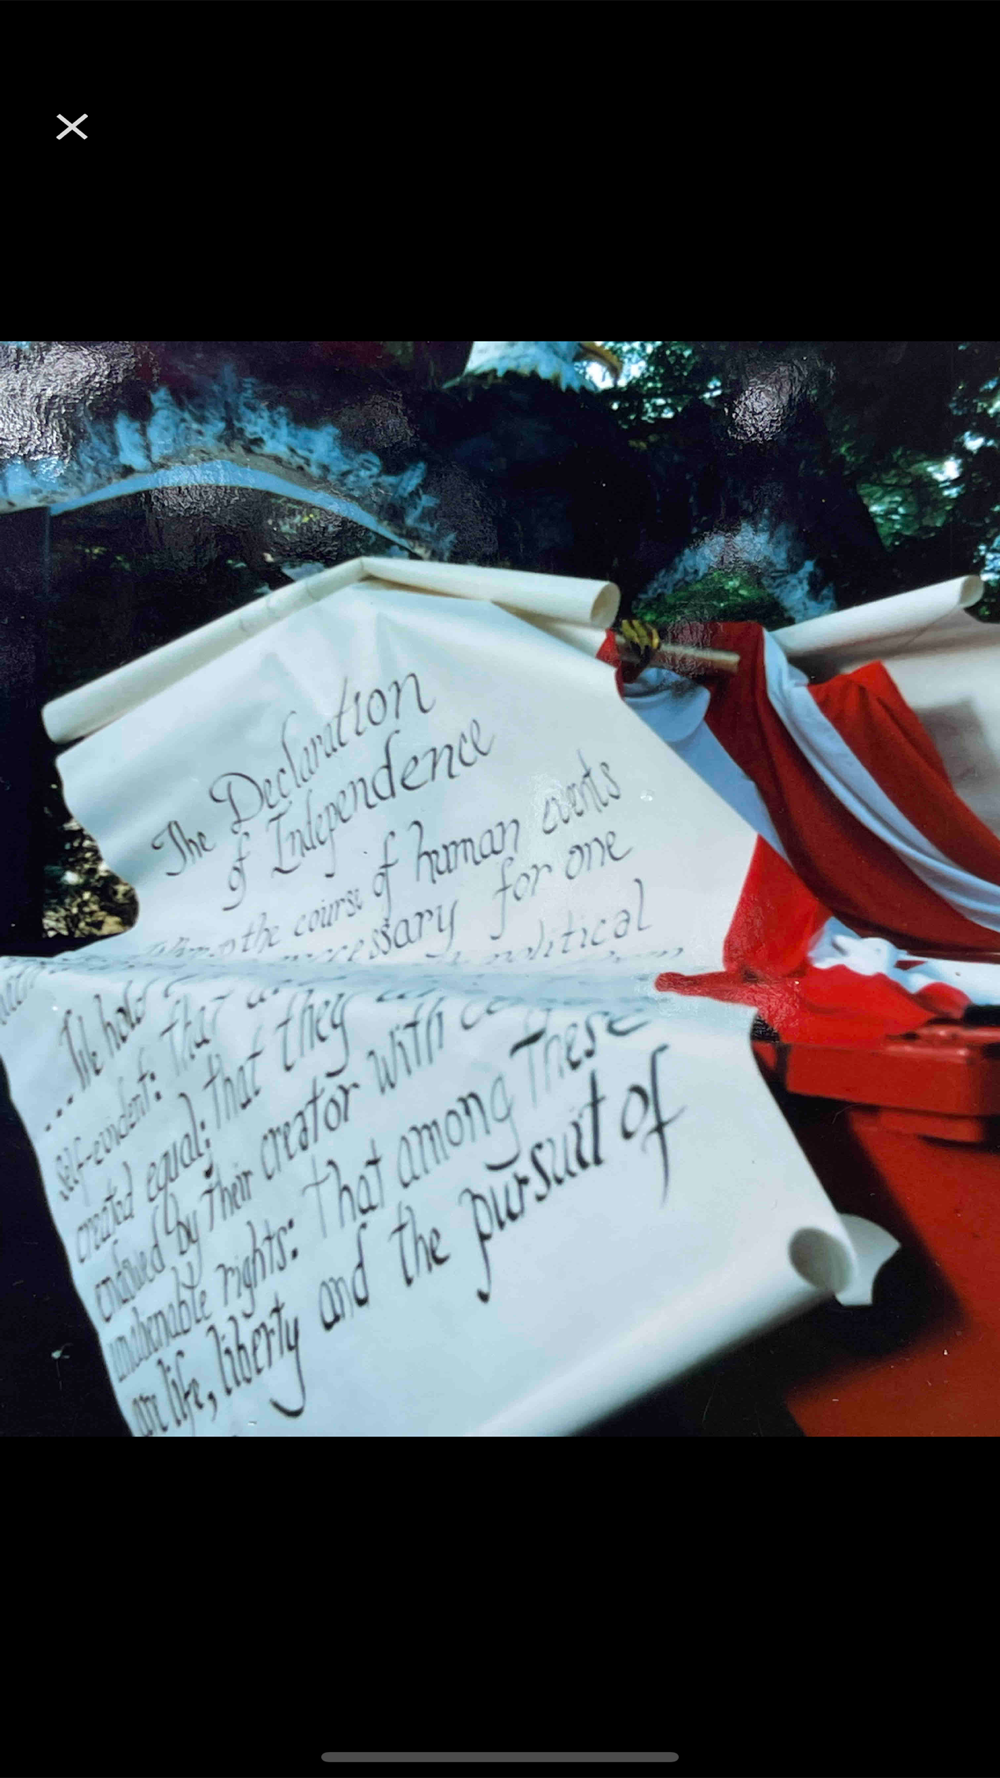 The Declaration
of Independence
When in the course of human events
necessary for one
political
...We hold
self-evident: that
created equal; that they
endowed by their creator with
unalienable rights: That among These
are life, liberty and the pursuit of